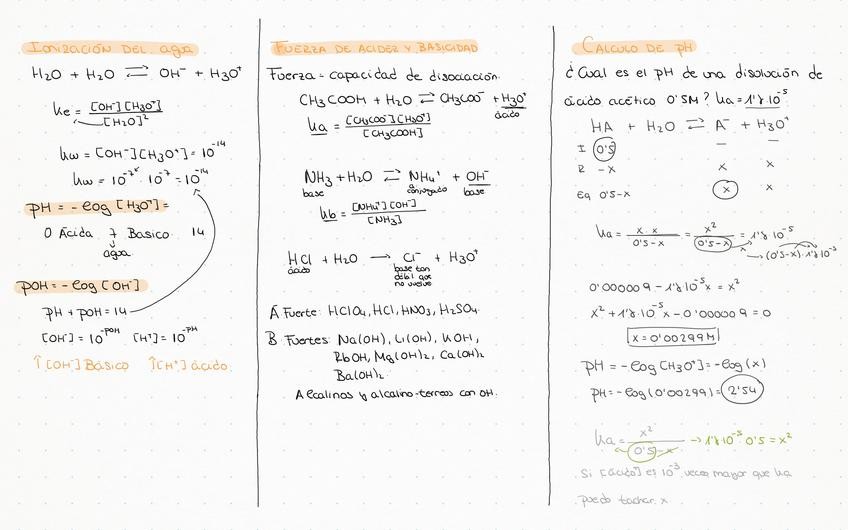 IONIZACIÓN DEL agua
H2O + H2O ⇌ OH⁻ + H3O⁺
Ke = [OH⁻][H3O⁺] / [H2O]²
Kw = [OH⁻][H3O⁺] = 10⁻¹⁴
Kw = 10⁻⁷ · 10⁻⁷ = 10⁻¹⁴
pH = - log [H3O⁺] =
0 Ácida 7 Básico 14
agua
pOH = - log [OH⁻]
pH + pOH = 14
[OH⁻] = 10^-pOH [H⁺] = 10^-pH
↑[OH⁻] Básico ↑[H⁺] ácido.
FUERZA DE ACIDEZ Y BASICIDAD
Fuerza = capacidad de disociación.
CH3COOH + H2O ⇌ CH3COO⁻ + H3O⁺
ácido
Ka = [CH3COO⁻][H3O⁺] / [CH3COOH]
NH3 + H2O ⇌ NH4⁺ + OH⁻
base conjugado base
Kb = [NH4⁺][OH⁻] / [NH3]
HCl + H2O → Cl⁻ + H3O⁺
ácido base tan
débil que
no vuelve
A. Fuerte: HClO4, HCl, HNO3, H2SO4.
B. Fuertes: Na(OH), Li(OH), KOH,
RbOH, Mg(OH)2, Ca(OH)2
Ba(OH)2.
Alcalinos y alcalino-terreos con OH.
CALCULO DE pH
¿Cual es el pH de una disolución de
ácido acético 0'5M? Ka = 1'8·10⁻⁵
HA + H2O ⇌ A⁻ + H3O⁺
I 0'5 — —
R -x x x
Eq 0'5-x x x
Ka = x·x / 0'5-x = x² / 0'5-x = 1'8·10⁻⁵
→ (0'5-x)·1'8·10⁻⁵
0'000009 - 1'8·10⁻⁵x = x²
x² + 1'8·10⁻⁵x - 0'000009 = 0
x = 0'00299M
pH = - log [H3O⁺] = - log (x)
pH = - log (0'00299) = 2'54
Ka = x² / 0'5-x → 1'8·10⁻⁵ 0'5 = x²
Si [ácido] es 10⁻³ veces mayor que Ka
puedo tachar x